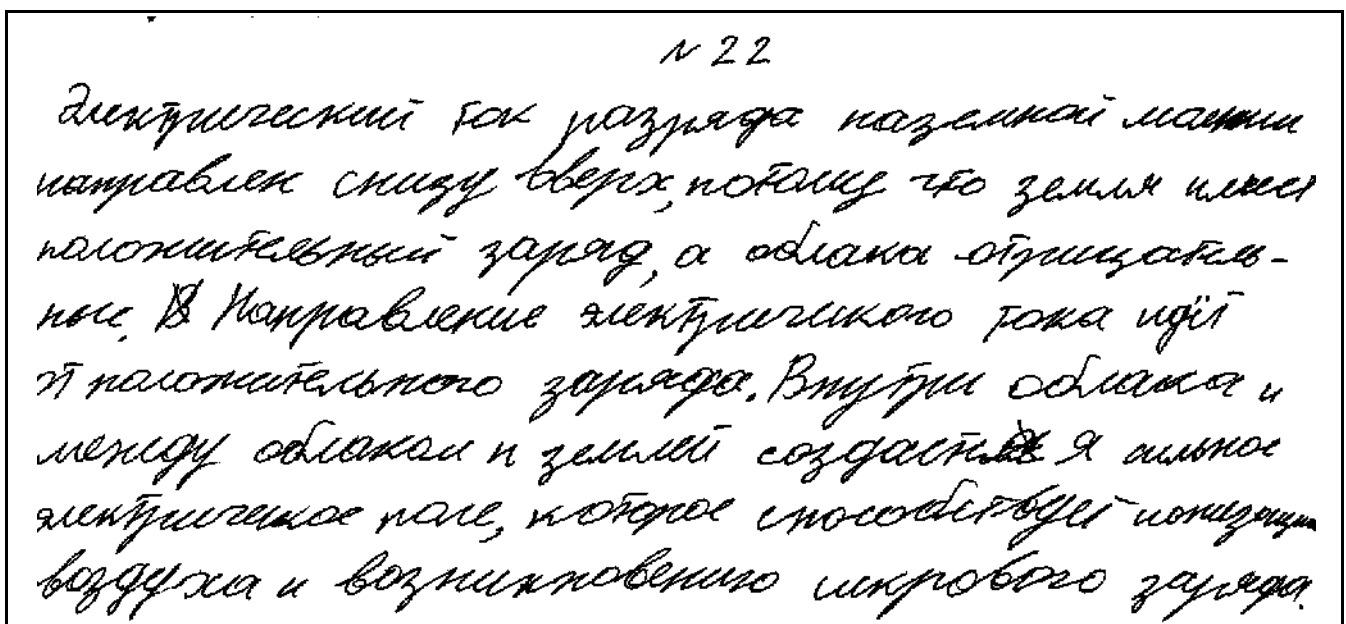 № 22
Электрический ток разряда наземной молнии
направлен снизу вверх, потому что земля имеет
положительный заряд, а облака отрицатель-
ные. Направление электрического тока идёт
от положительного заряда. Внутри облака и
между облаком и землей создаётся сильное
электрическое поле, которое способствует ионизации
воздуха и возникновению искрового заряда.